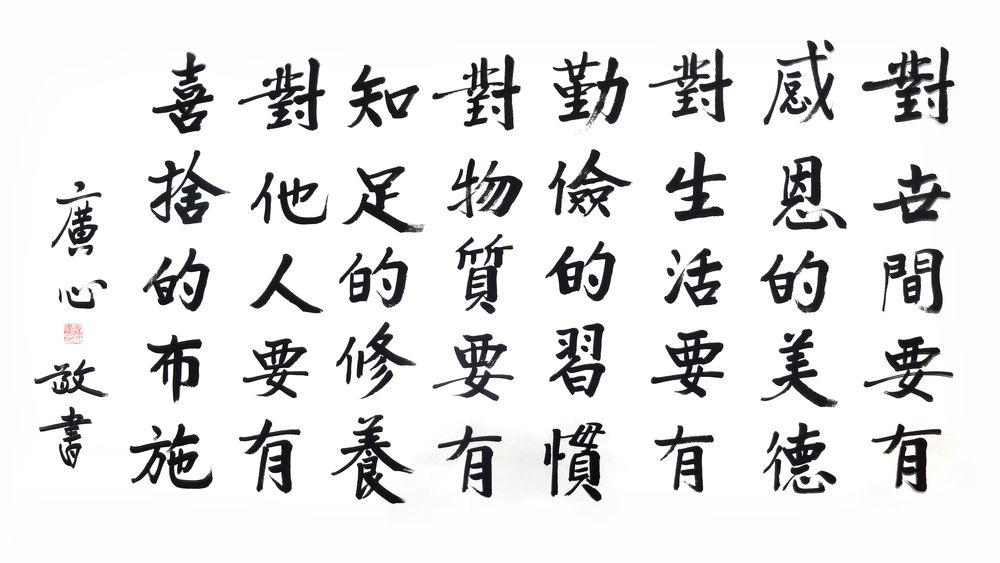 對世間要有
感恩的美德
對生活要有
勤儉的習慣
對物質要有
知足的修養
對他人要有
喜捨的布施
廣心敬書